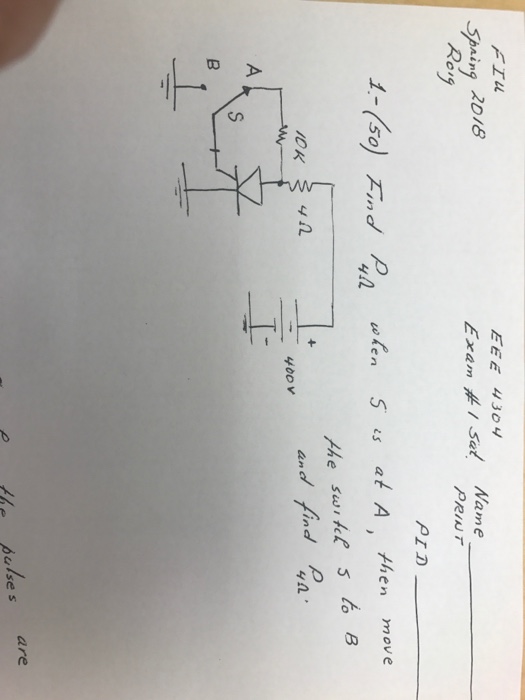 FIU
Spring 2018
Roig
EEE 4304
Exam # 1 Sat. Name
PRINT
PID
1.- (50) Find P4Ω when S is at A, then move
the switch S to B
and find P4Ω.
10K
4Ω
A
S
B
+
-
400V
P the pulses are